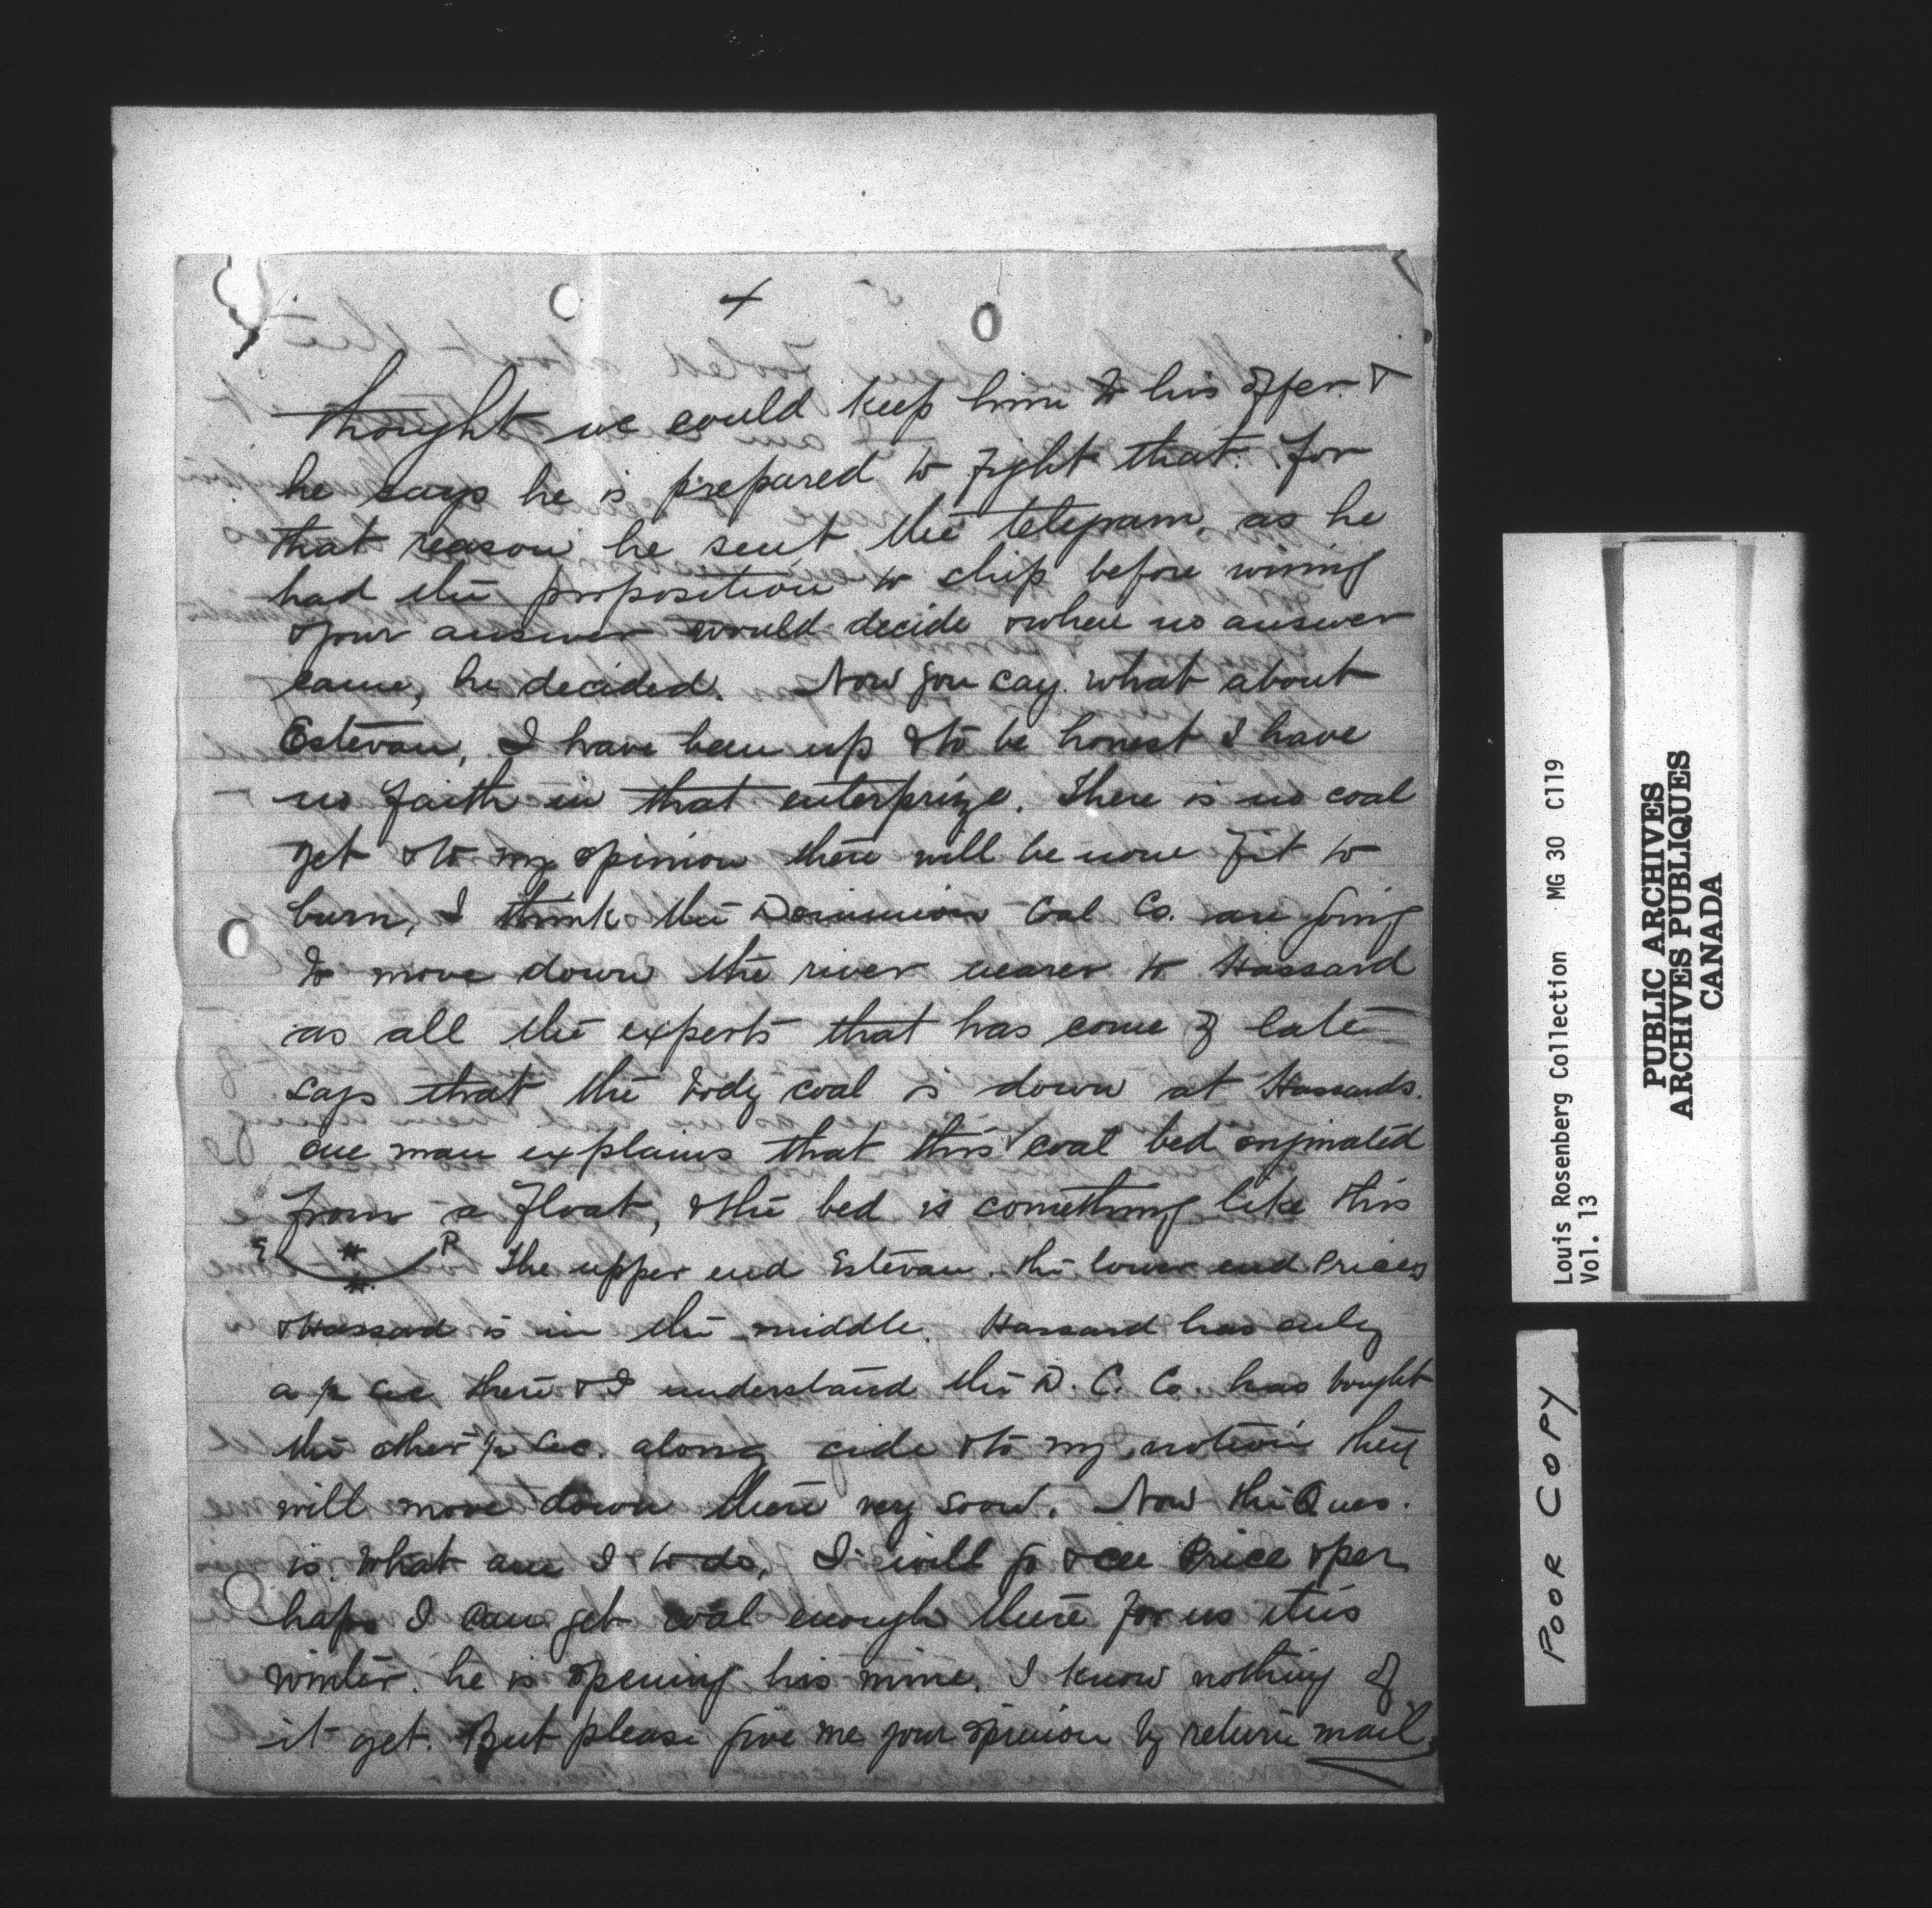 4
thought we could keep him to his offer. &
he says he is prepared to fight that. for
that reason he sent the telegram, as he
had the proposition to ship before wiring
& your answer would decide & when no answer
came, he decided. Now you say what about
Estevan, I have been up & to be honest I have
no faith in that enterprize. There is no coal
yet & to my opinion there will be none fit to
burn, I think the Dominion Coal Co. are going
to move down the river nearer to Hassard
as all the experts that has come of late
says that the body coal is down at Hassards.
one man explains that this coal bed originated
from a float, & the bed is something like this
E * P The upper end Estevan. the lower end Prices
*
& Hassard is in the middle. Hassard has only
a ½ sec there & I understand the D. C. Co. has bought
the other ½ sec. along side & to my notion they
will move down there very soon. Now the Ques.
is. What am I to do, I will go & see Price & per
haps I can get coal enough there for us this
winter. he is opening his mine, I know nothing of
it yet. But please give me your opinion by return mail,
Louis Rosenberg Collection MG 30 C119
Vol. 13
PUBLIC ARCHIVES
ARCHIVES PUBLIQUES
CANADA
POOR COPY